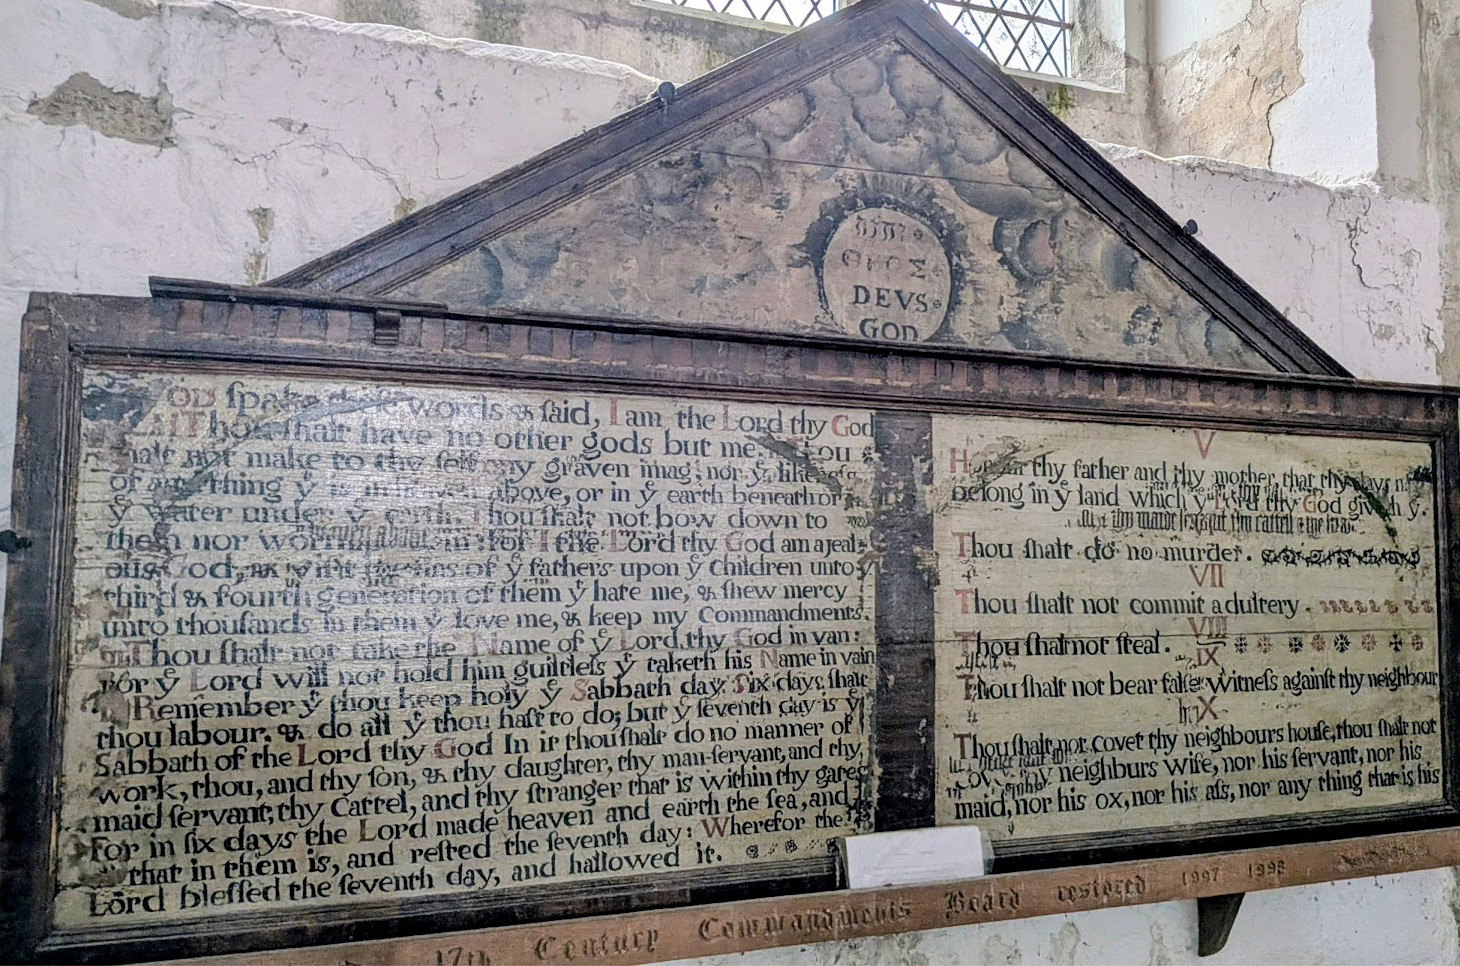 יהוה
ΘΕΟΣ
DEVS
GOD
God spake these words & said, I am the Lord thy God
Thou shalt have no other gods but me. Thou
shalt not make to thy self any graven imag; nor yͤ likeness
of any thing yͭ is in heaven above, or in yͤ earth beneath or
yͤ water under yͤ earth. Thou shalt not bow down to
them nor worship for I the Lord thy God am a jeal:
ous God, & visit the sins of yͤ fathers upon yͤ Children unto yͤ
third & fourth generation of them yͭ hate me, & shew mercy
unto thousands in them yͭ love me, & keep my Commandments.
III Thou shalt not take the Name of yͤ Lord thy God in van:
For yͤ Lord will not hold him guiltless yͭ taketh his Name in vain
Remember yͭ thou keep holy yͤ Sabbath day. Six days shalt
thou labour. & do all yͭ thou hast to do; but yͤ seventh day is yͤ
Sabbath of the Lord thy God In it thou shalt do no manner of
work, thou, and thy son, & thy daughter, thy man-servant, and thy
maid servant, thy Cattel, and thy stranger that is within thy gates
For in six days the Lord made heaven and earth the sea, and
that in them is, and rested the seventh day: Wherefor the
Lord blessed the seventh day, and hallowed it.
V
Honour thy father and thy mother, that thy days
belong in yͤ land which yͤ Lord thy God giveth yͤ.
Thou shalt do no murder.
VII
Thou shalt not commit adultery.
VIII
Thou shalt not steal.
IX
Thou shalt not bear false witness against thy neighbour
X
Thou shalt not covet thy neighbours house, thou shalt not
covet thy neighburs wife, nor his servant, nor his
maid, nor his ox, nor his ass, nor any thing that is his
17th Century Commandments Board restored 1997 1998